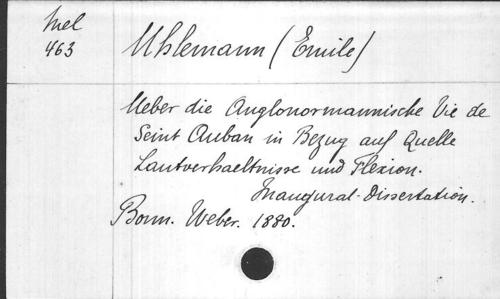 Mel
463
Uhlemann (Emile)
Ueber die Anglonormannische Vie de
Seint Auban in Bezug auf Quelle
Lautverhaeltnisse und Flexion.
Inaugural-Dissertation.
Bonn. Weber. 1880.